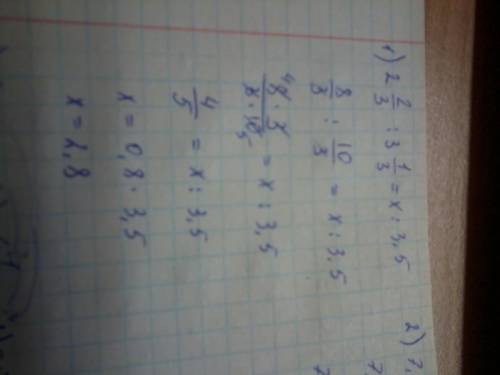 1) 2 2/3 : 3 1/3 = x : 3,5
8/3 : 10/3 = x : 3,5
⁴8 · 3 / 3 · 10₅ = x : 3,5
4/5 = x : 3,5
x = 0,8 · 3,5
x = 2,8
2) 7,
7